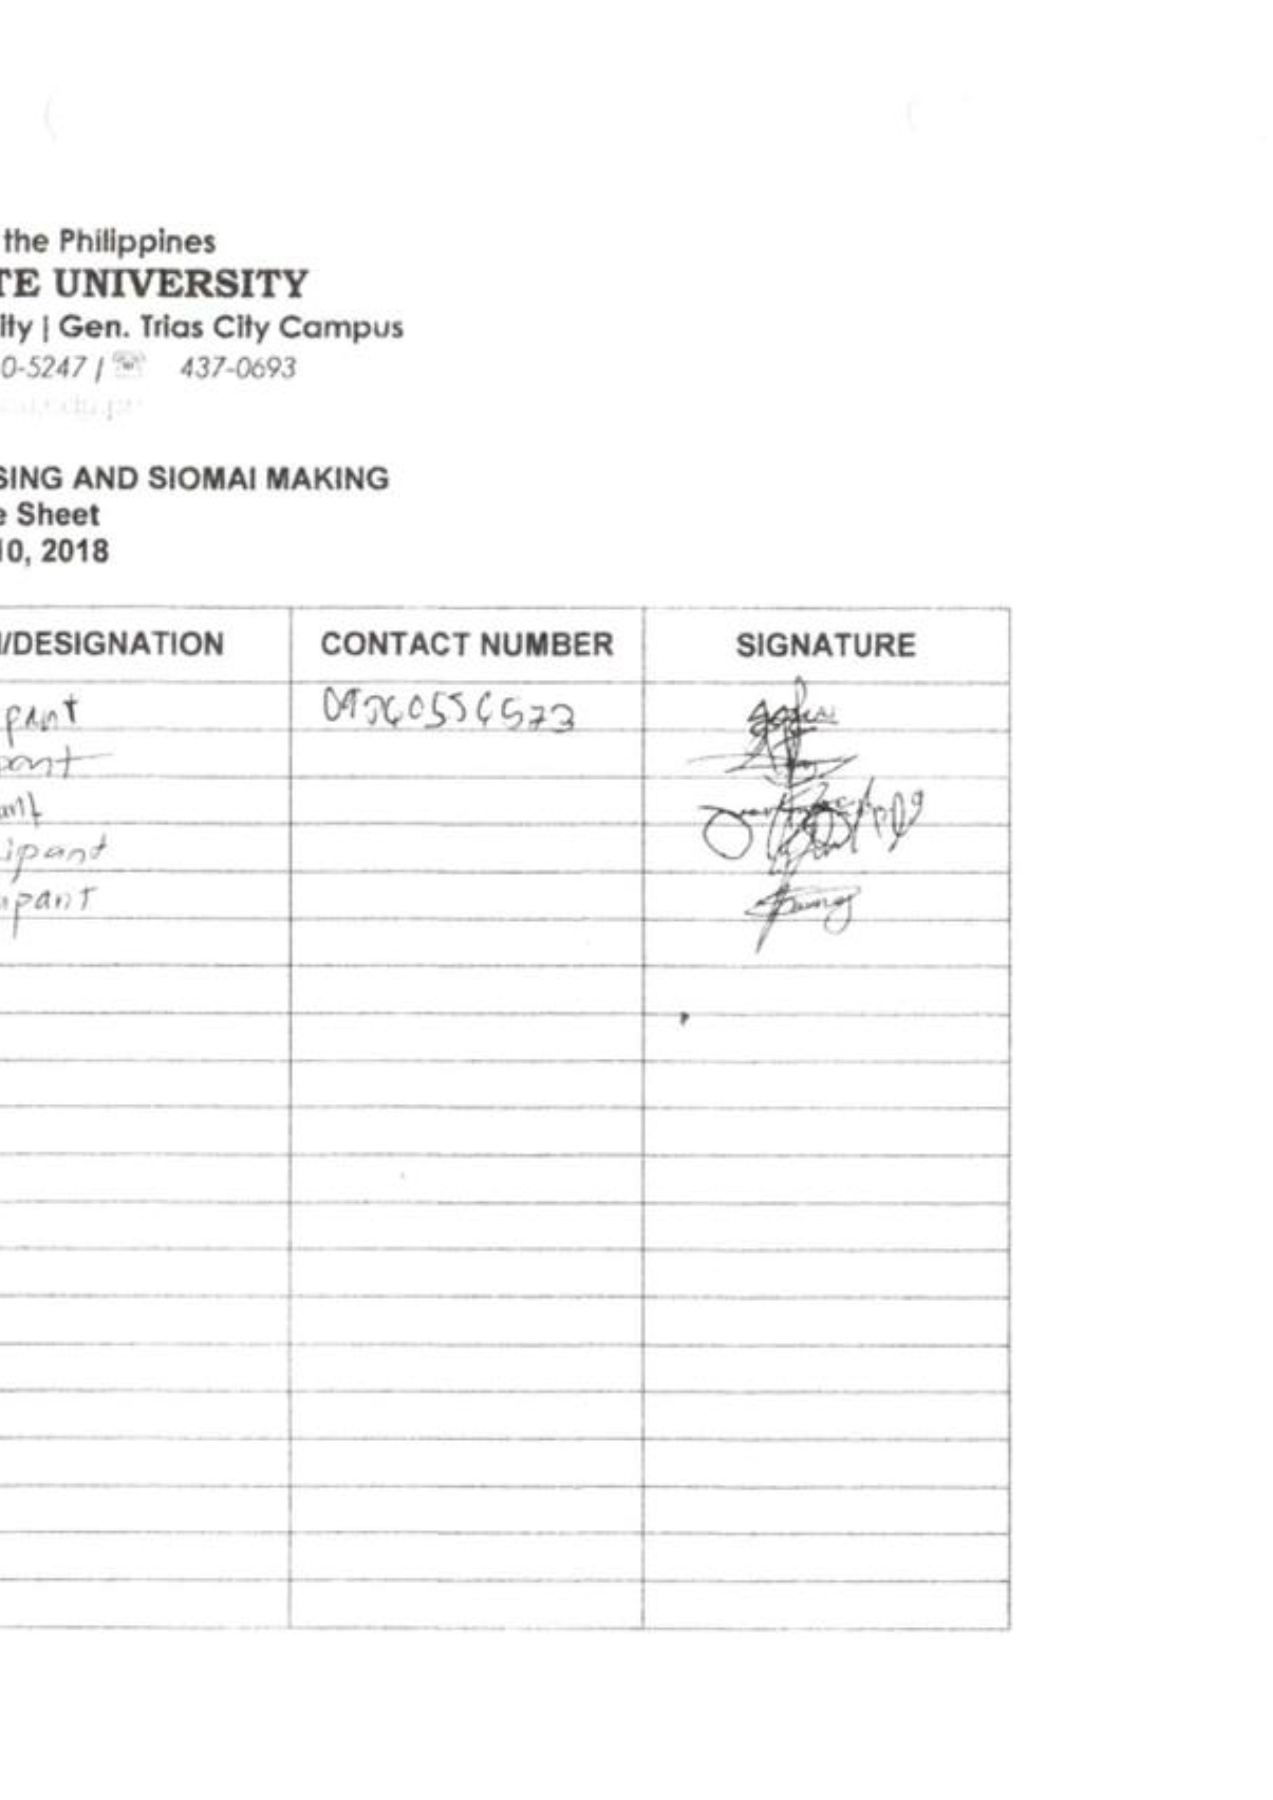 the Philippines
TE UNIVERSITY
ity | Gen. Trias City Campus
0-5247 | ☏ 437-0693
SING AND SIOMAI MAKING
e Sheet
10, 2018
N/DESIGNATION CONTACT NUMBER SIGNATURE
pant
pant
ant
ipant
ipant